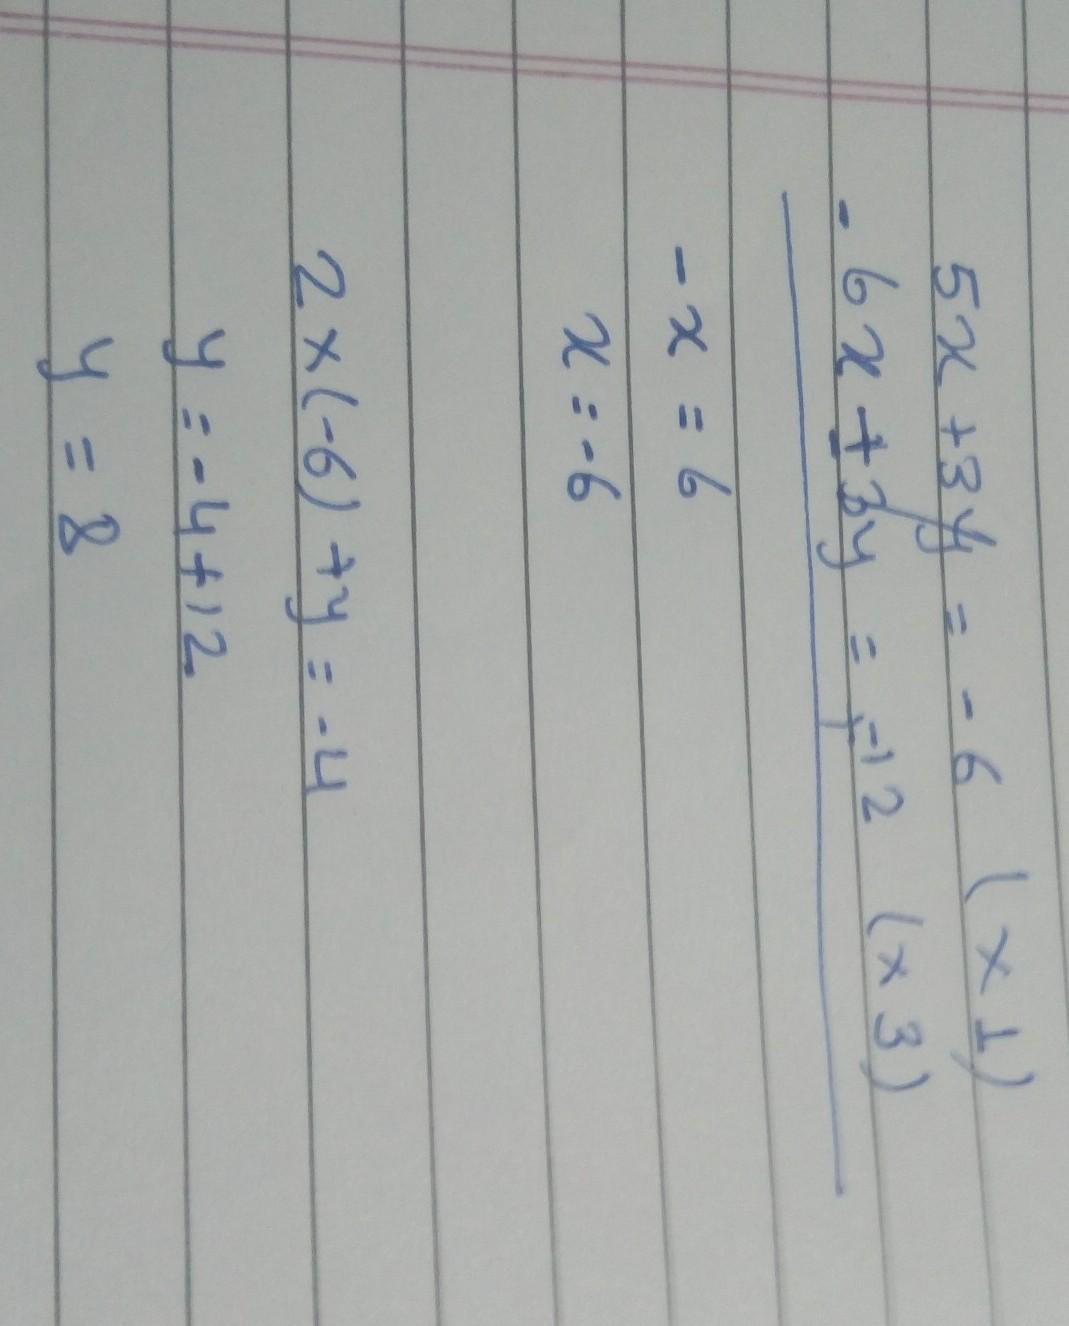 5x + 3y = -6 (x 1)
- 6x + 3y = -12 (x 3)
- +
-x = 6
x = -6
2 x (-6) + y = -4
y = -4 + 12
y = 8